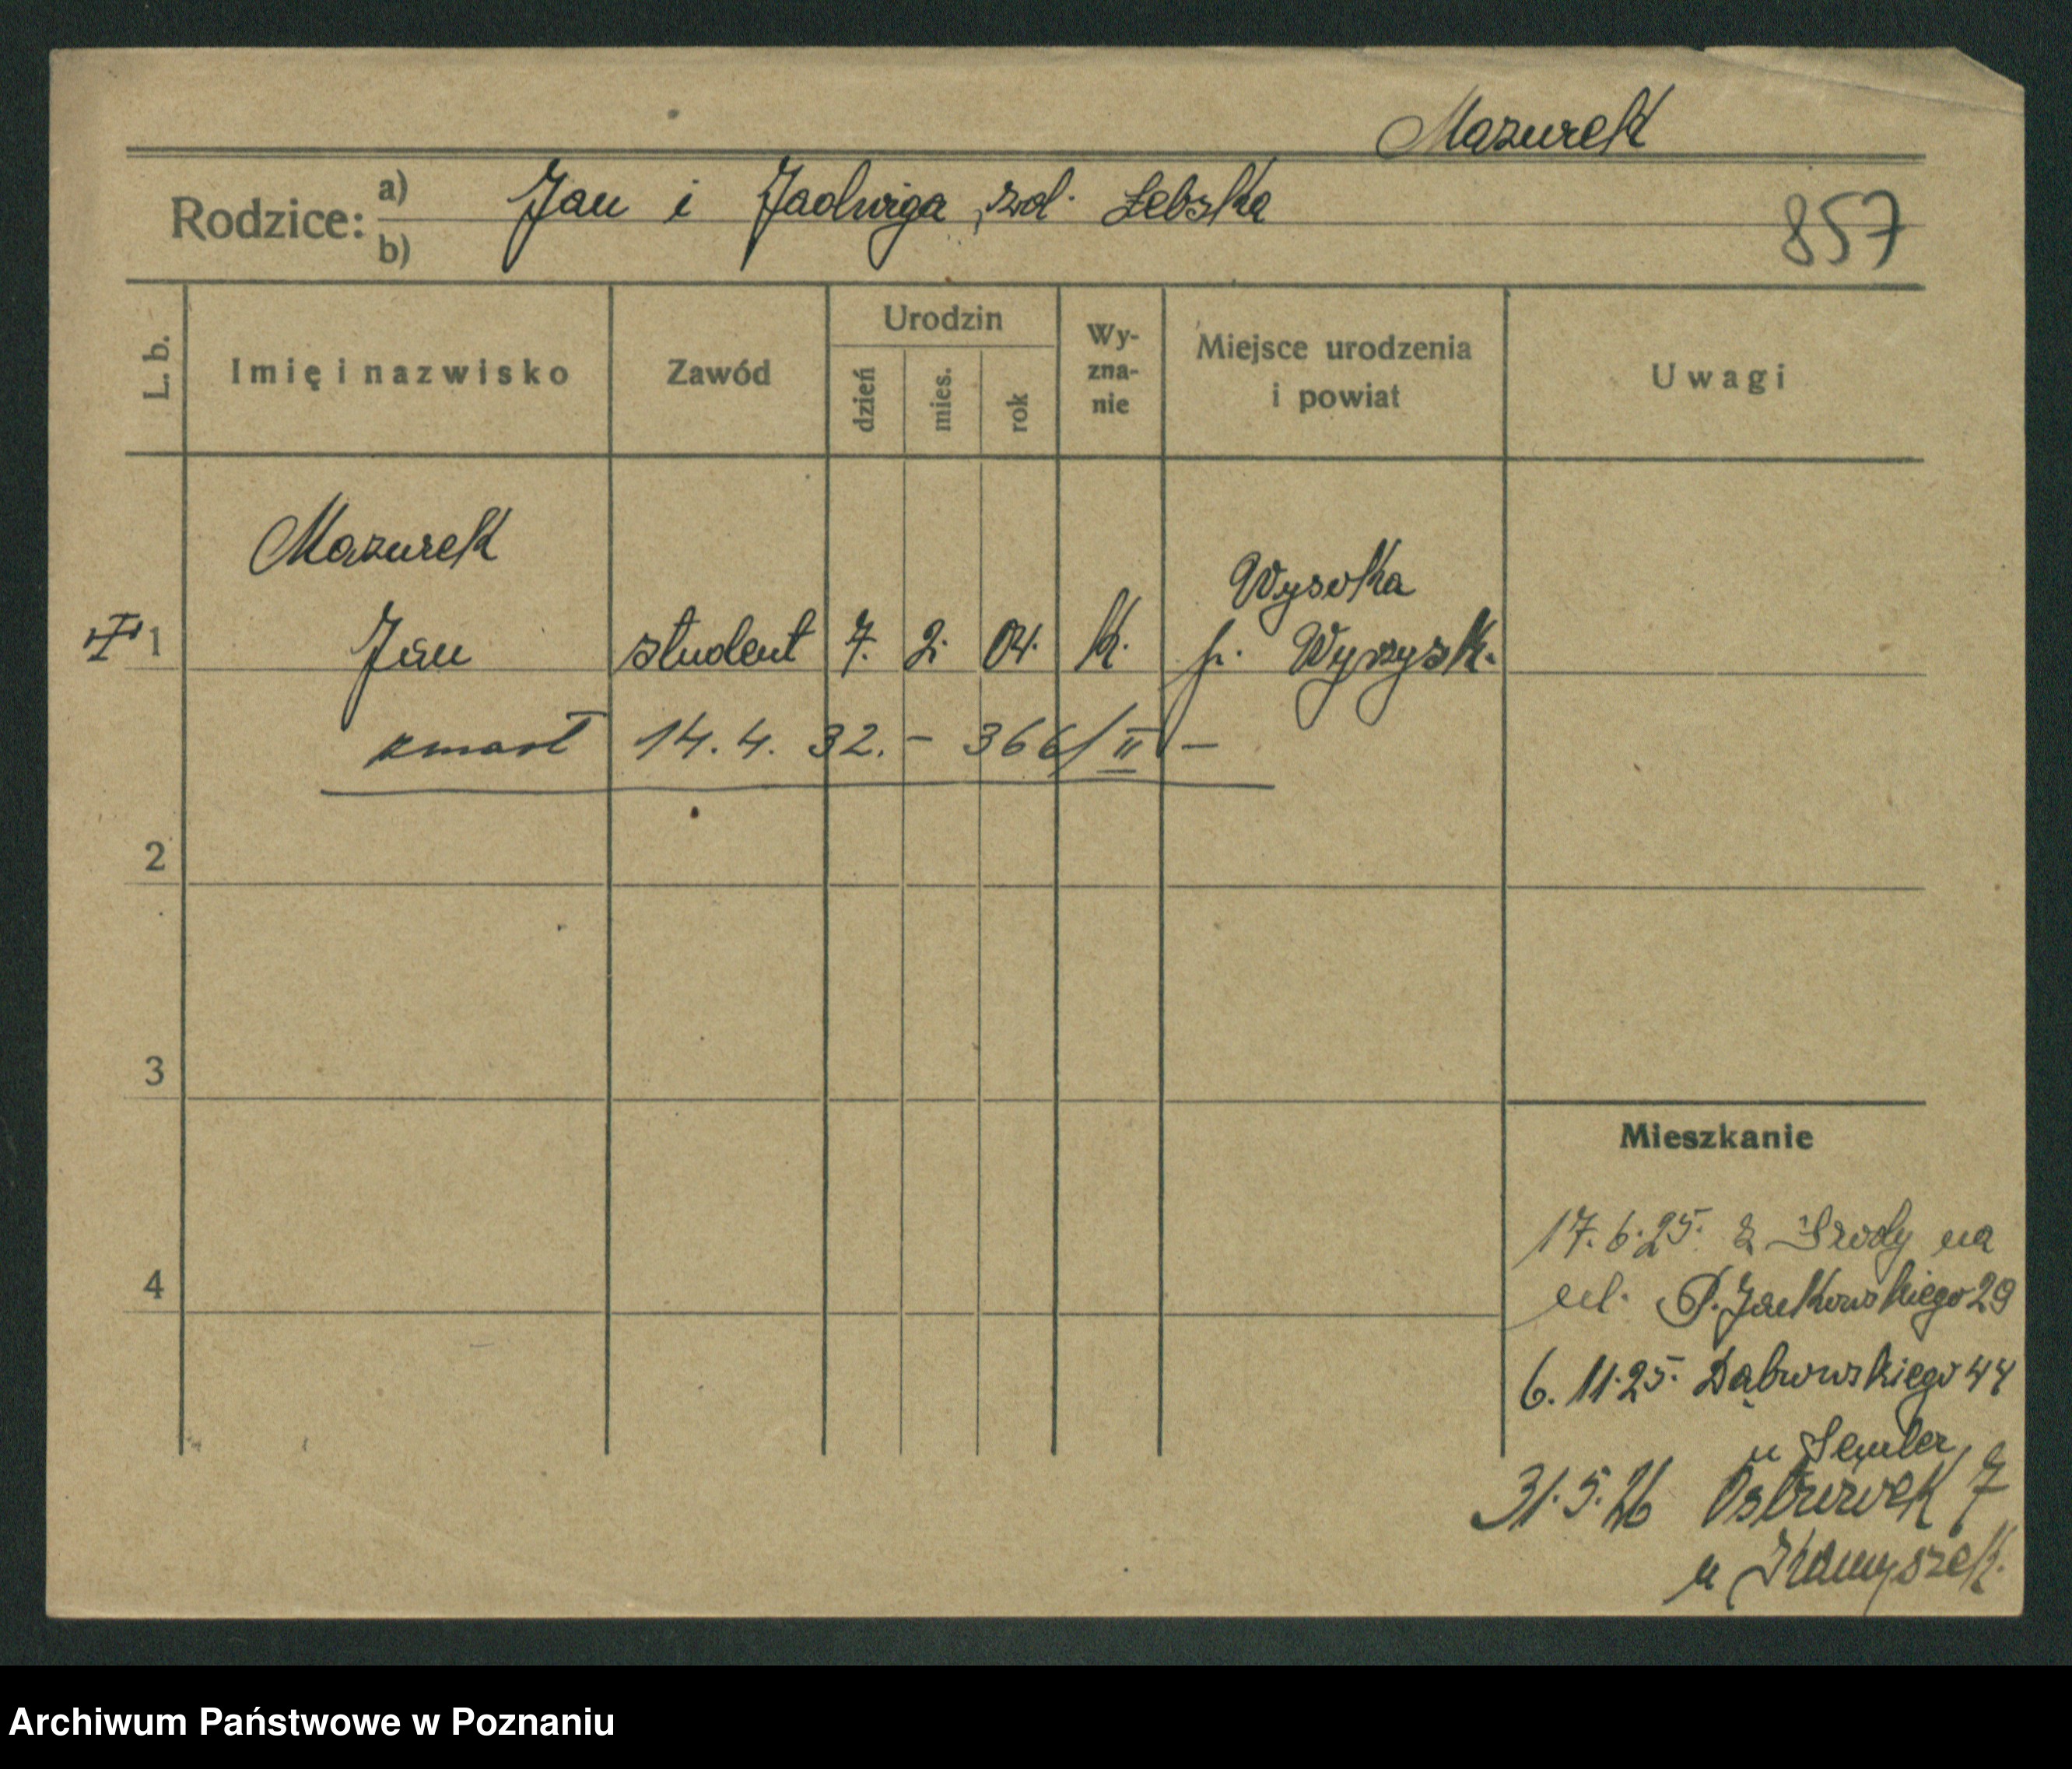 Mazurek
Rodzice: a) Jan i Jadwiga, rod. Łebska
b)
857
L. b.
Imię i nazwisko
Zawód
Urodzin
dzień
mies.
rok
Wy-
zna-
nie
Miejsce urodzenia
i powiat
Uwagi
Mazurek
Wysoka
1 Jan student 7. 2. 04. k. p. Wyrzysk.
zmarł 14. 4. 32. – 366/II –
2
3
Mieszkanie
17. 6. 25. z Środy na
4
ul. P. Jackowskiego 29
6. 11. 25. Dąbrowskiego 44
u Semler
31. 5. 26 Ostrówek 7
u
Archiwum Państwowe w Poznaniu